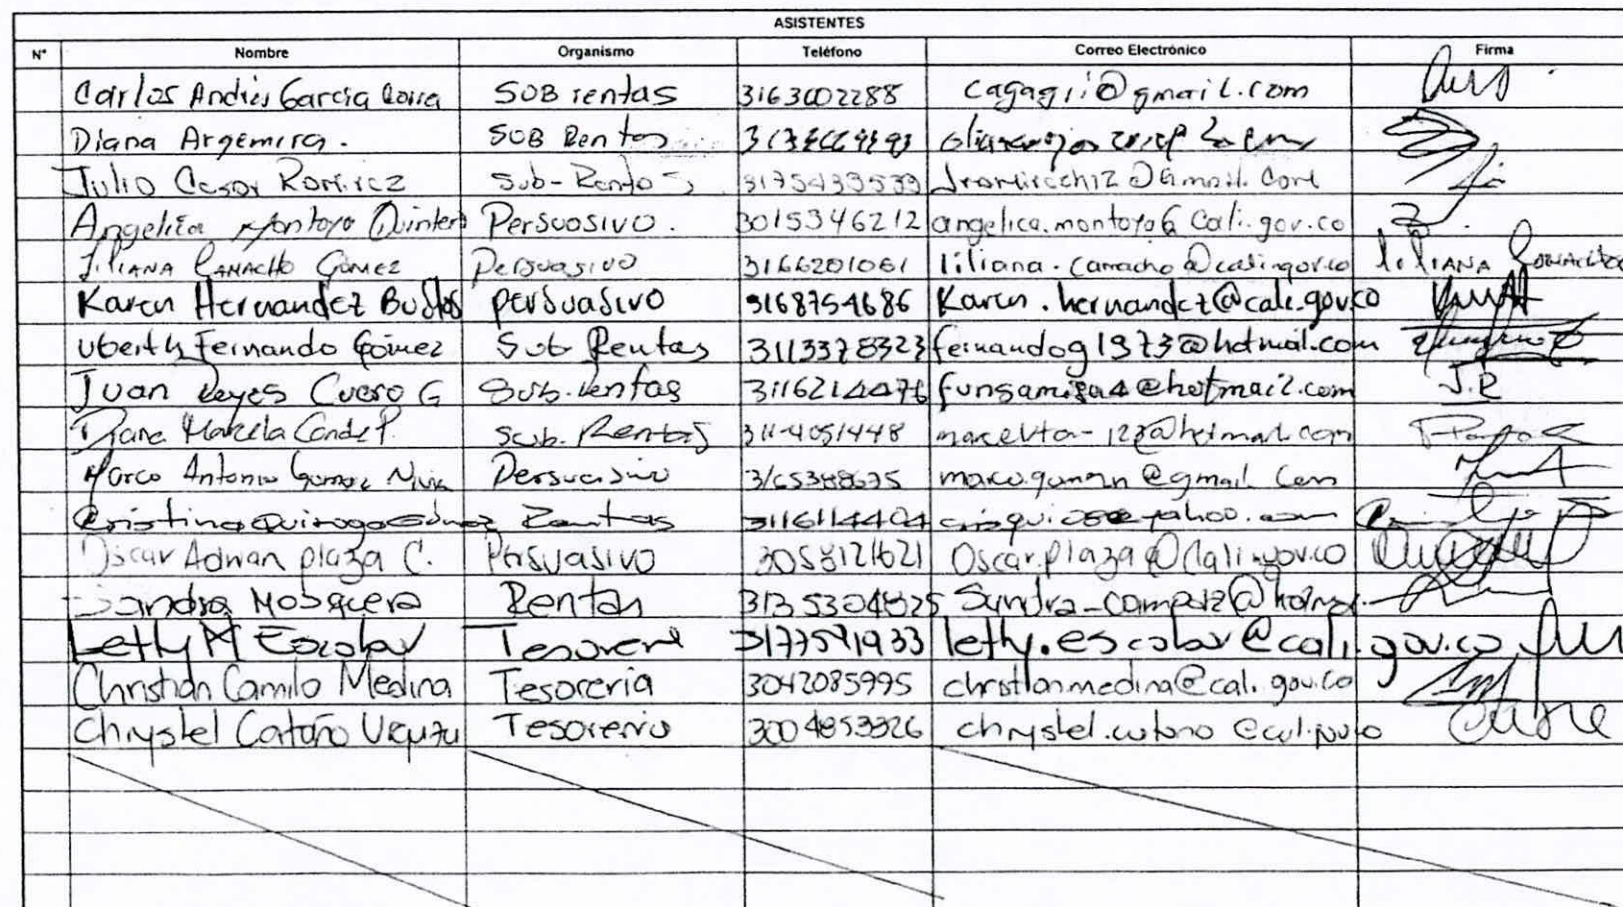 ASISTENTES
N° Nombre Organismo Teléfono Correo Electrónico Firma
Carlos Andrés Garcia SOB rentas 3163002288 cagagii@gmail.com
Diana Argemira. SOB Rentas
Julio Cesar Ramirez Sub-Rentas 3175439539
Angelica Montoya Quintero Persuasivo. 3015346212 angelica.montoya@cali.gov.co
LILIANA CAMACHO GOMEZ Persuasivo 3166201061 liliana.camacho@cali.gov.co LILIANA
Karen Hernandez Bustos persuasivo 3168754686 Karen.hernandez@cali.gov.co
Uberth Fernando Gómez Sub Rentas 3113378323 fernandog1973@hotmail.com
Juan Reyes Cuero G Sub.rentas 3116214476 funsamisa4@hotmail.com J.R
Diana Marcela Conde P. Sub. Rentas 3114051448
Marco Antonio Persuasivo
Cristina Quiroga Gómez Rentas 3116114404
Oscar Adrian plaza C. Persuasivo 3058121621 Oscar.plaza@Cali.gov.co
Sandra Mosquera Rentas 3135304825
Letty M Escobar Tesoreria 3177591933 letty.escobar@cali.gov.co
Christian Camilo Medina Tesoreria 3042085995 christian.medina@cali.gov.co
Chrystel Cataño Tesoreria 3004853326